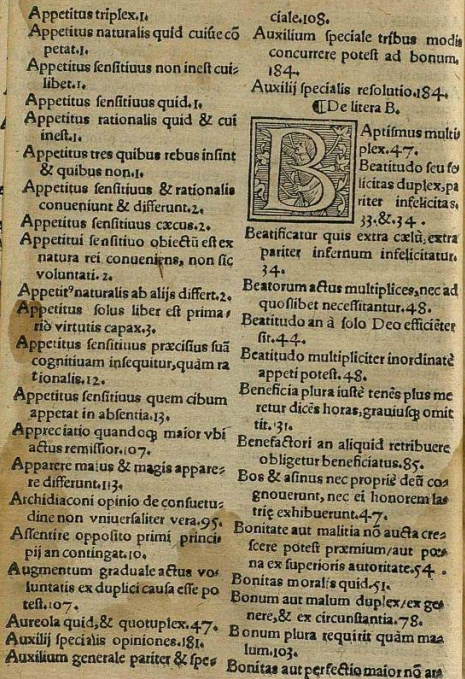 Appetitus triplex.1.
Appetitus naturalis quid cuiúe cō
petat.1.
Appetitus sensitiuus non inest cui⸗
libet.1.
Appetitus sensitiuus quid.1.
Appetitus rationalis quid & cui
inest.1.
Appetitus tres quibus rebus insint
& quibus non.1.
Appetitus sensitiuus & rationalis
conueniunt & differunt.2.
Appetitus sensitiuus cæcus.2.
Appetitui sensitiuo obiectū est ex
natura rei conueniens, non sic
voluntati. 2.
Appetit⁹ naturalis ab alijs differt.2.
Appetitus solus liber est prima⸗
riò virtutis capax.3.
Appetitus sensitiuus præcisius suā
cognitiuam insequitur, quàm ra
tionalis.12.
Appetitus sensitiuus quem cibum
appetat in absentia.13.
Appreciatio quandoq; maior vbi
actus remissior.107.
Apparere maius & magis appare⸗
re differunt.113.
Archidiaconi opinio de consuetu⸗
dine non vniuersaliter vera.95.
Assentire opposito primi princi⸗
pij an contingat.10.
Augmentum graduale actus vo⸗
luntatis ex duplici causa esse po
test.107.
Aureola quid, & quotuplex.47.
Auxilij specialis opiniones.181.
Auxilium generale pariter & spe⸗
ciale.108.
Auxilium speciale tribus modis
concurrere potest ad bonum.
184.
Auxilij specialis resolutio.184.
¶De litera B.
BAptismus multi
plex.47.
Beatitudo seu fo
licitas duplex, pa
riter infelicitas.
33.&.34.
Beatificatur quis extra cœlū, extra
pariter infernum infelicitatur.
34.
Beatorum actus multiplices, nec ad
quoslibet necessitantur.48.
Beatitudo an à solo Deo efficiēter
sit.44.
Beatitudo multipliciter inordinatè
appeti potest.48.
Beneficia plura iustè tenēs plus me
retur dicēs horas, grauiusq; omit
tit.131.
Benefactori an aliquid retribuere
obligetur beneficiatus.85.
Bos & asinus nec propriè deū co⸗
gnouerunt, nec ei honorem la⸗
triȩ exhibuerunt.47.
Bonitate aut malitia nō aucta cre⸗
scere potest præmium/aut poe⸗
na ex superioris autoritate.54.
Bonitas moralis quid.51.
Bonum aut malum duplex/ex ge⸗
nere, & ex circunstantia.78.
Bonum plura requirit quàm ma⸗
lum.103.
Bonitas aut perfectio maior nō ar⸗